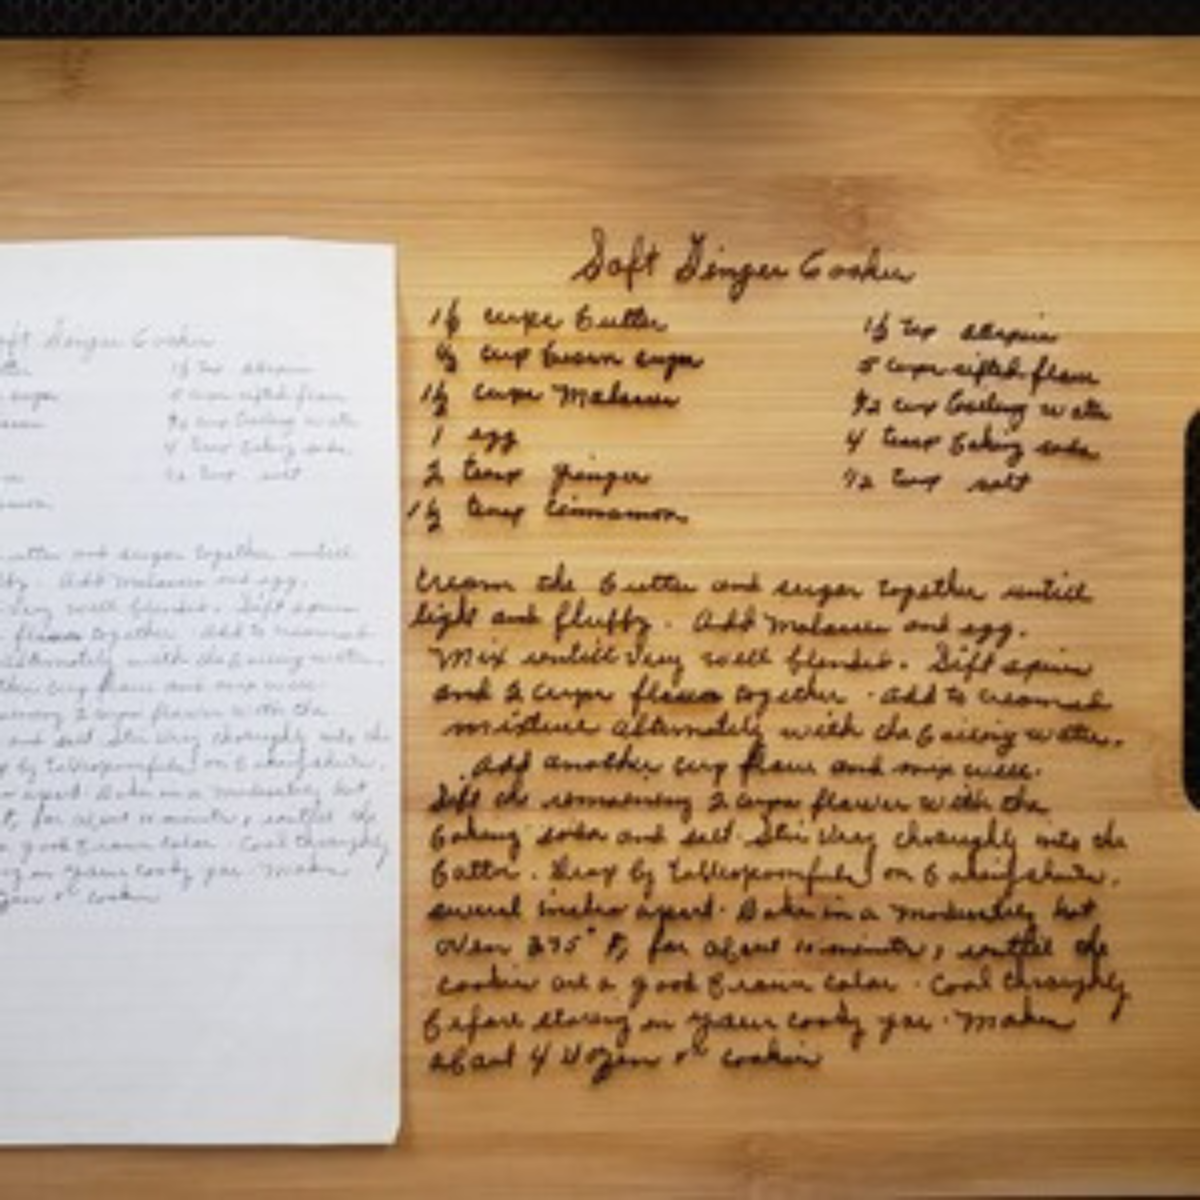 Soft Ginger Cookies
1½ cups butter
cup brown sugar
1½ cups Molasses
1 egg
2 teasp ginger
1½ teasp Cinnamon
1½ tsp
5 cups sifted flour
½ cup boiling water
4 teasp baking soda
½ teasp salt
Cream the butter and sugar together untill
light and fluffy. Add Molasses and egg.
Mix untill very well blended. Sift spices
and 2 cups flower together. Add to creamed
mixture alternately with the boiling water.
Add another cup flour and mix well.
Sift the remaining 2 cups flower with the
baking soda and salt. Stir very thoroughly into the
batter. Drop by on baking sheets,
several inches apart. Bake in a moderately hot
oven 375° F, for about 10 minutes, the
cookies are a good brown color. Cool thoroughly
before storing in your cooky jar. Makes
about 4 dozen cookies
Soft Ginger Cookies
sugar
1½ tsp
5 cups sifted flour
½ cup boiling water
4 teasp baking soda
½ teasp salt
butter and sugar together untill
Add Molasses and egg.
very well blended. Sift spices
flower together. Add to creamed
alternately with the boiling water.
cup flour and mix well.
remaining 2 cups flower with the
and salt. Stir very thoroughly into the
by on baking sheets,
apart. Bake in a moderately hot
for about 10 minutes, the
good brown color. Cool thoroughly
in your cooky jar. Makes
cookies